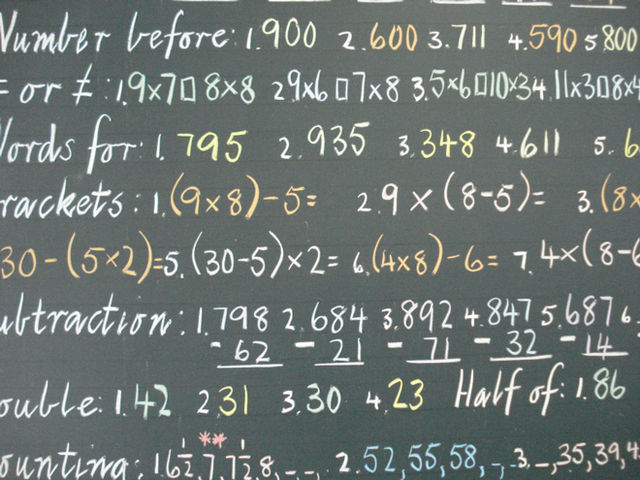 Number before: 1.900 2.600 3.711 4.590 5.800
= or ≠ : 1.9×7□8×8 2.9×6□7×8 3.5×6□10×3 4.11×3□8×4
Words for: 1.795 2.935 3.348 4.611 5.6
rackets: 1.(9×8)-5= 2.9×(8-5)= 3.(8×
30-(5×2)= 5.(30-5)×2= 6.(4×8)-6= 7.4×(8-6
ubtraction: 1.798 2.684 3.892 4.847 5.687 6.
-62 -21 -71 -32 -14
ouble: 1.42 2.31 3.30 4.23 Half of: 1.86
**
ounting: 1.6½,7,7½,8,-,-, 2.52,55,58,-,- 3.-,35,39,4